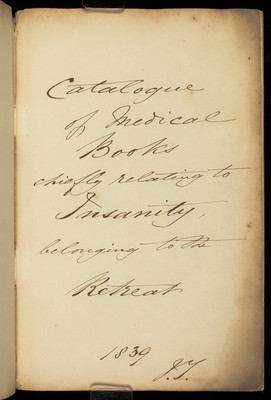 Catalogue
of Medical
Books
chiefly relating to
Insanity,
belonging to the
Retreat
1839